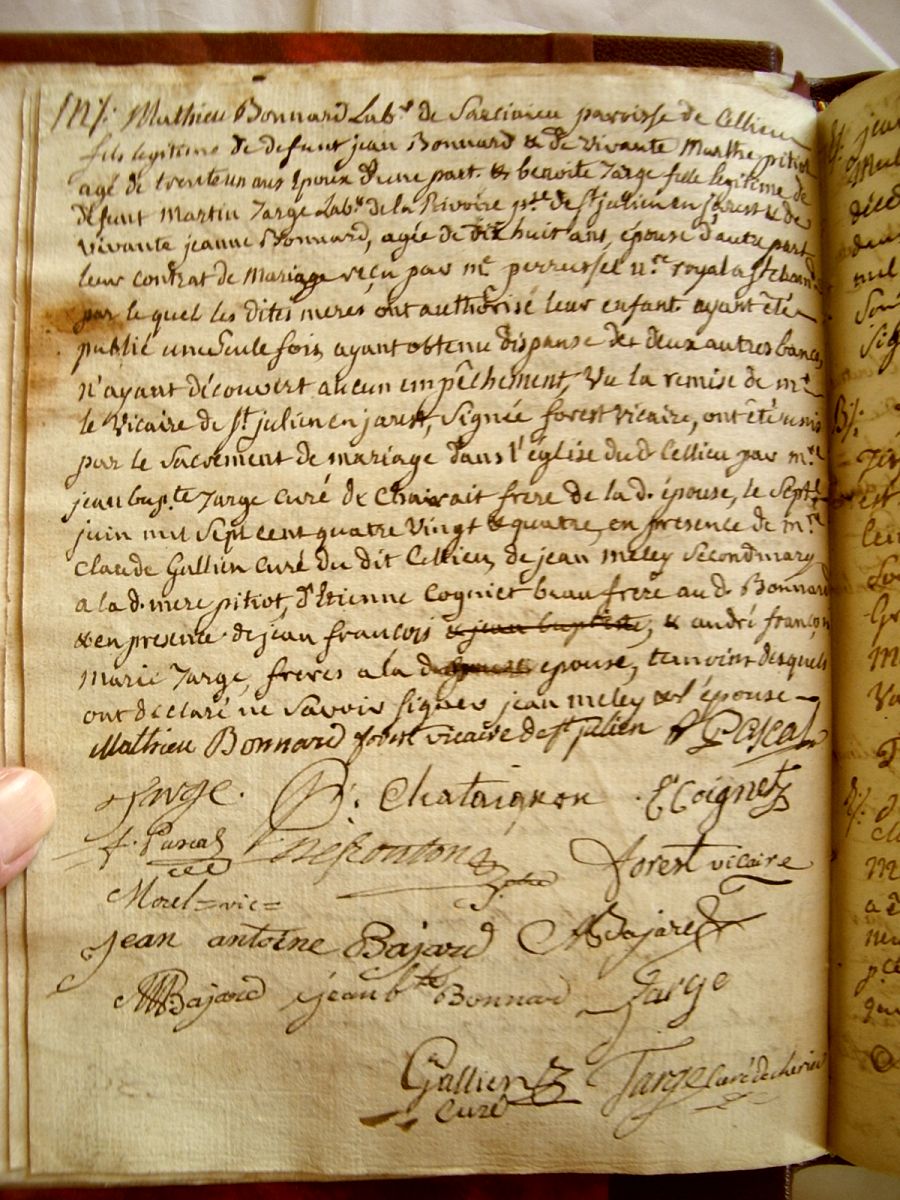 m/: Mathieu Bonnard Labr de Sarciaieu paroisse de Cellieu
fils legitime de defunt jean Bonnard & de vivante Marthe pitiot
agé de trente un ans Epoux d'une part. & benoite Targe fille legitime de
défunt Martin Targe Labr de la Rivoire pse de St julien en jarest & de
vivante jeanne Bonnard, agée de dix huit ans, épouse d'autre part
leur contrat de Mariage reçu par me perrussel nre royal a St cham
par le quel les dites meres ont authorisé leur enfant ayant été
publié une seule fois ayant obtenu dispanse des deux autres bancs
n'ayant découvert aucun empêchement, vu la remise de mr
le vicaire de St julien en jarest, signée forest vicaire, ont été unis
par le Sacrement de mariage dans l'église dud Cellieu par mre
jean bapte Targe curé de frere de la d. épouse, le Sept
juin mil sept cent quatre vingt & quatre, en présence de mre
Claude Gallien curé du dit Cellieu, de jean meley second mary
a la d. mere pitiot, d'Etienne Cogniet beau frere au d. Bonnard
& en presence de jean françois & jean baptiste, & andré françois
marie Targe, freres a la d epouse, temoins desquels
ont declaré ne savoir signer jean meley & l'épouse
Mathieu Bonnard forest vicaire de st julien Pascal
Targe. Chataignon E Coignet
f. Pascal forest vicaire
Morel = vic =
jean antoine Bajard Bajard
Bajard jean bte Bonnard Targe
Gallien Targe curé de
curé